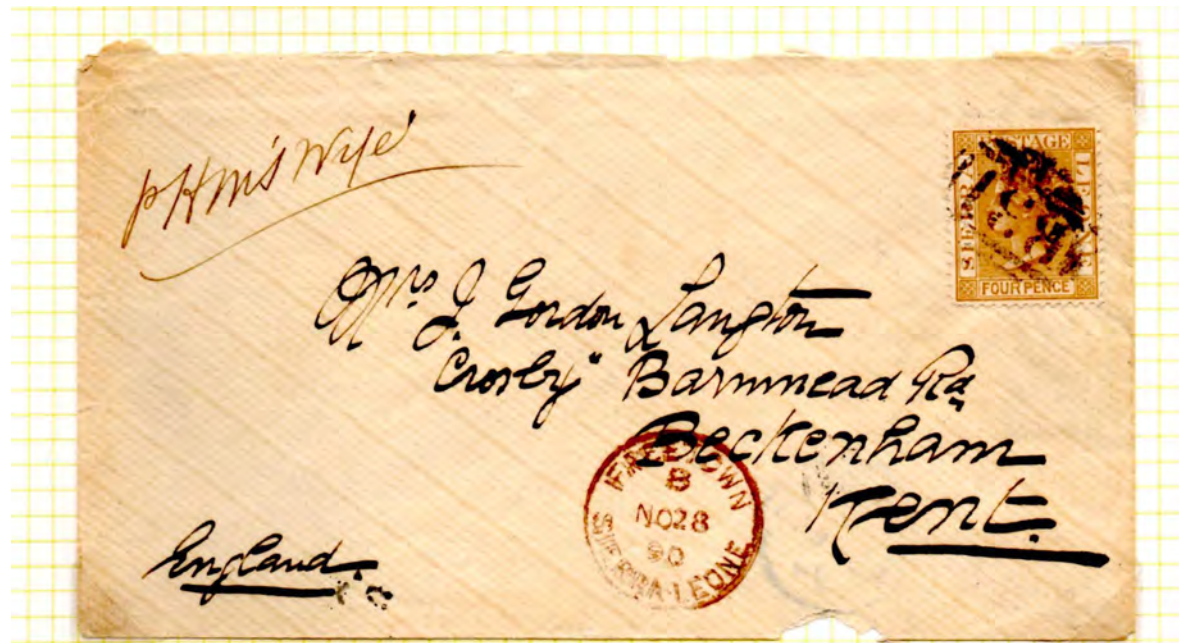 POSTAGE
SIERRA LEONE
FOUR PENCE
Mrs J. Gordon Langton
"Crosby" Barnmead Rd
Beckenham
Kent.
England
FREETOWN
B
NO 28
90
SIERRA LEONE